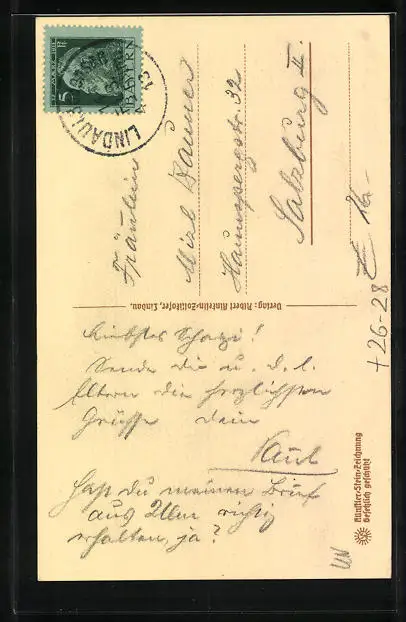 BAYERN
5 Pf
LINDAU
Fräulein
Mizl Bauner
Hauspergstr. 32
Salzburg II.
+26-28
Verlag: Albert Amtetlin-Zollikofer, Lindau.
Liebstes Schatzi!
Sende dir u. d. l.
Eltern die herzlichsten
Grüsse Dein
Paul
Hast du meinen Brief
aus Ulm richtig
erhalten, ja?
Künstler-Stein-Zeichnung
Gesetzlich geschützt